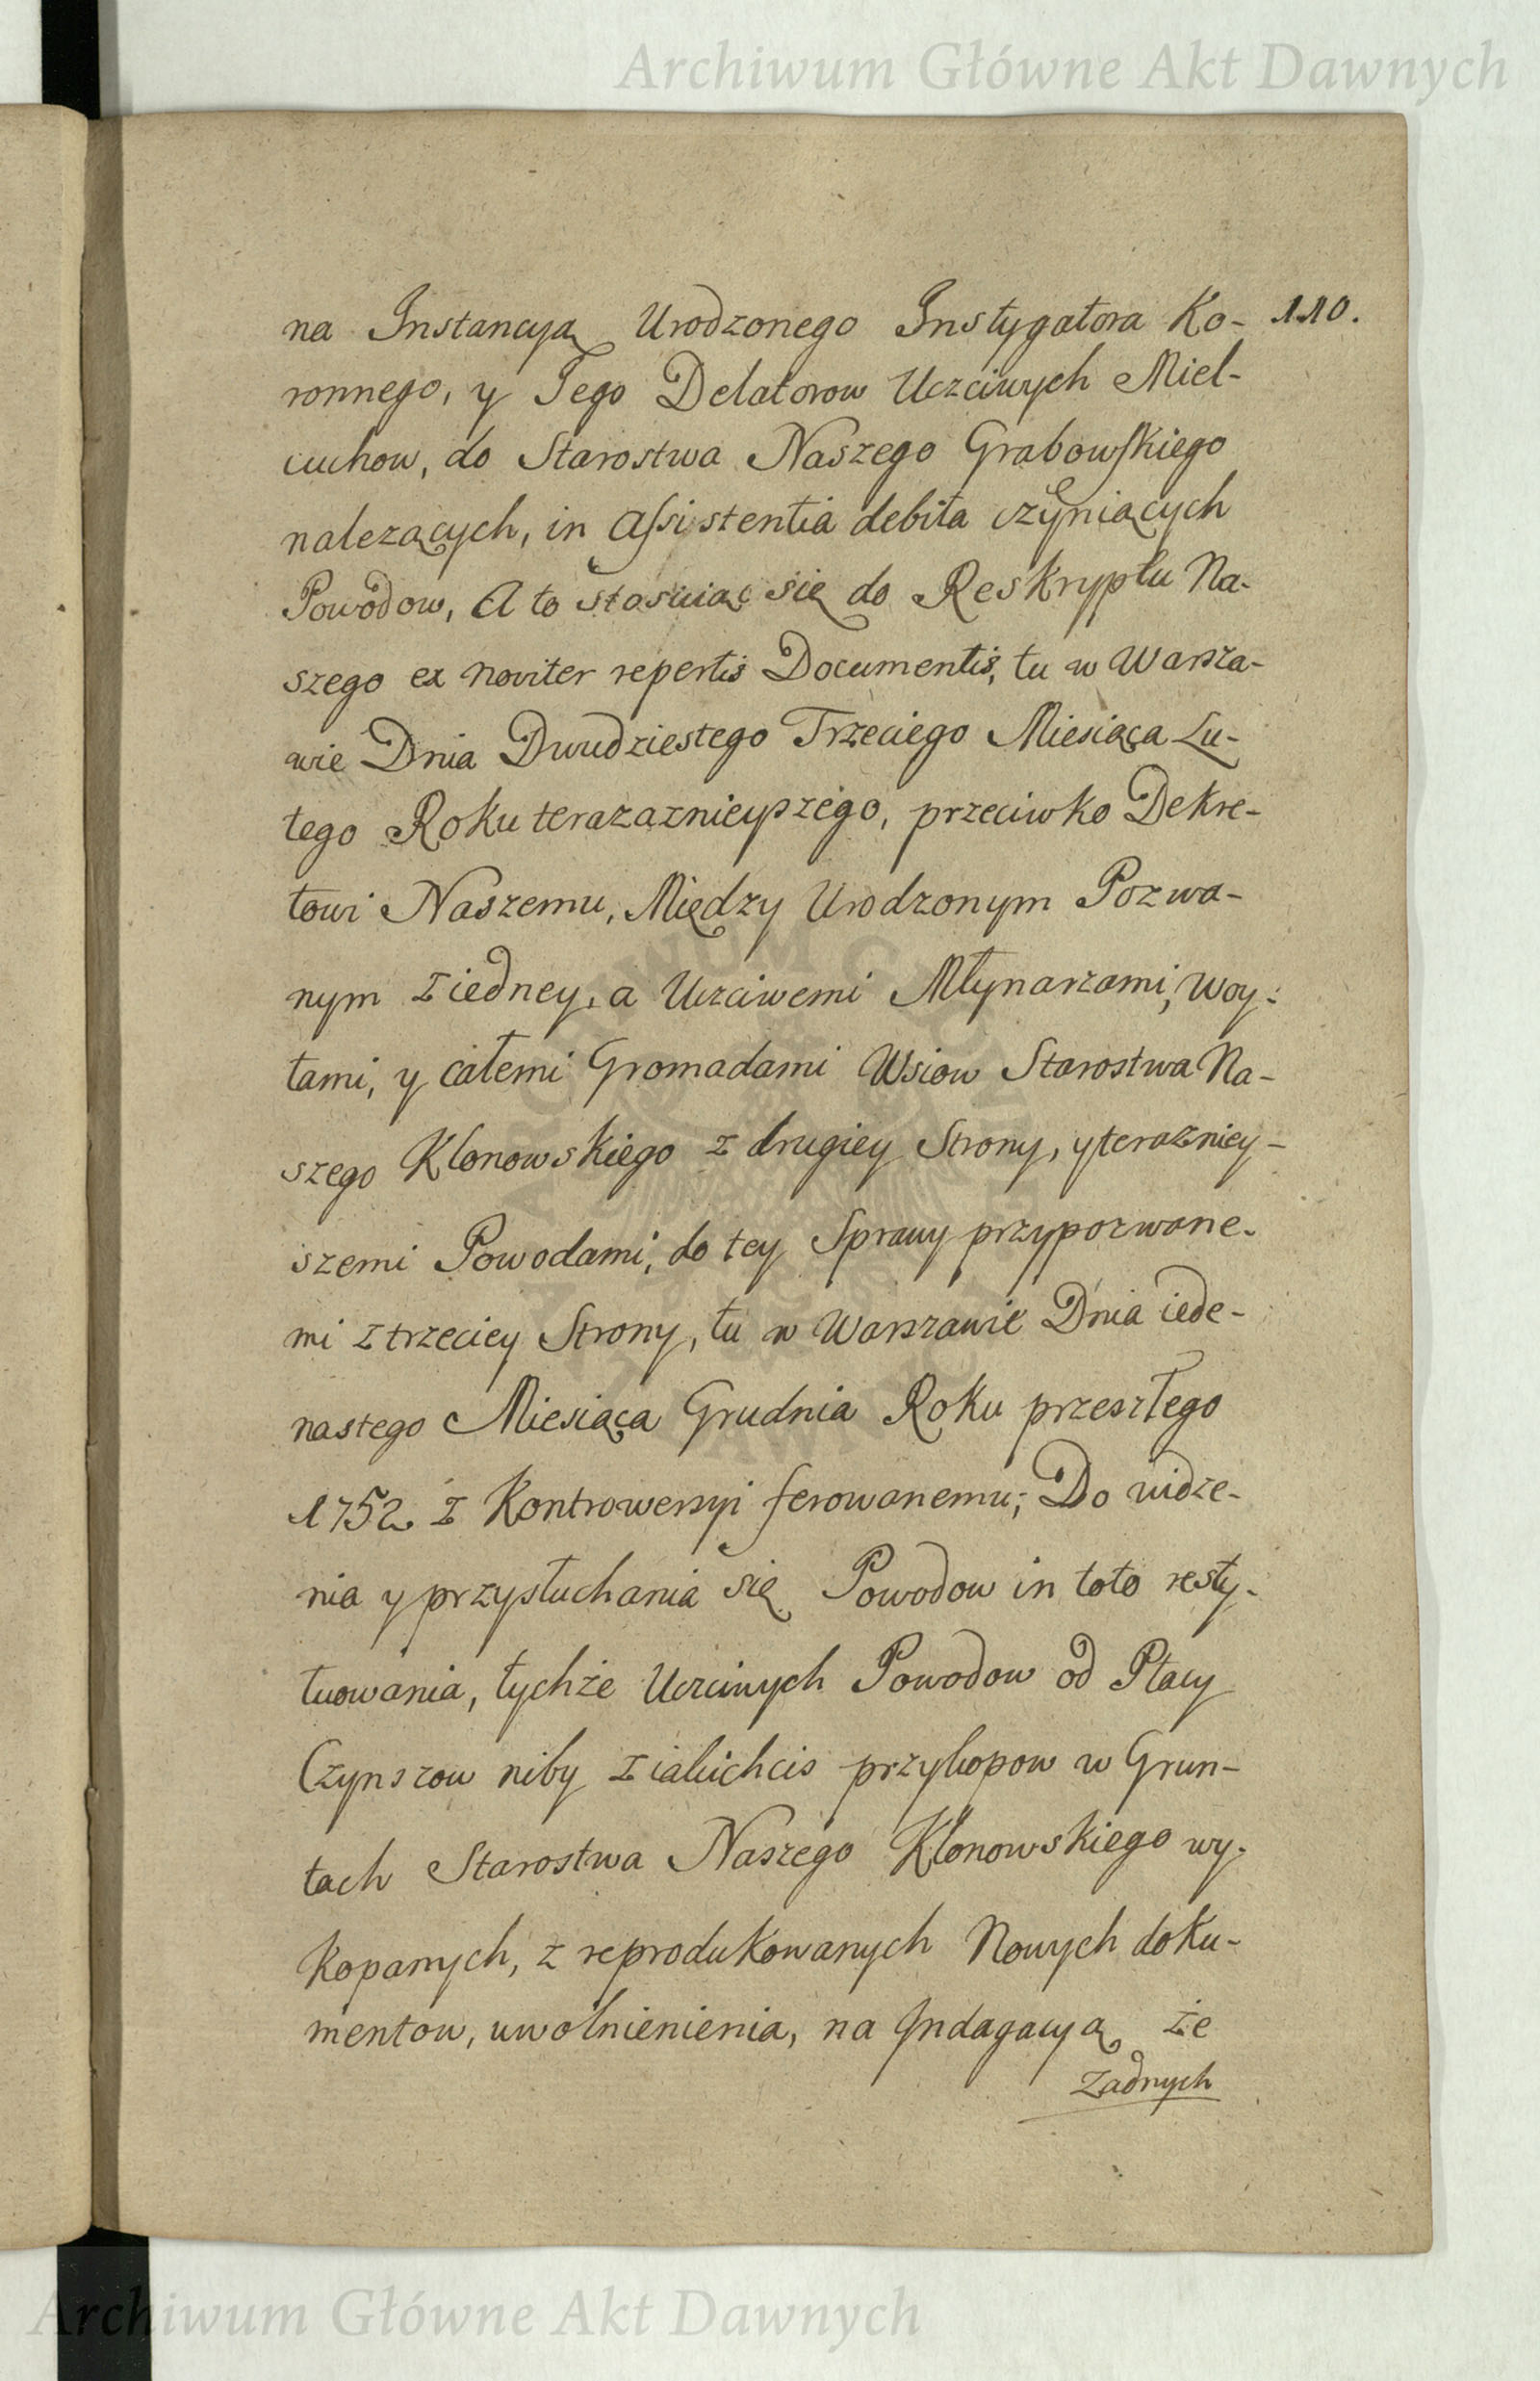 Archiwum Główne Akt Dawnych
na Instancyą Urodzonego Instygatora Ko- 110.
ronnego, y Jego Delatorow Uczciwych Miel-
cuchow, do Starostwa Naszego Grabowskiego
nalezących, in Assistentia debita czyniących
Powodow, A to stosuiąc się do Reskryptu Na-
szego ex noviter repertis Documentis, tu w Warsza-
wie Dnia Dwudziestego Trzeciego Miesiąca Lu-
tego Roku terazaznieyszego, przeciwko Dekre-
towi Naszemu, Między Urodzonym Pozwa-
nym z iedney, a Uczciwemi Młynarzami, Woy:
tami, y całemi Gromadami Wsiow Starostwa Na-
szego Klonowskiego z drugiey Strony, y teraźniey-
szemi Powodami, do tey Sprawy przypozwane-
mi z trzeciey Strony, tu w Warszawie Dnia iede-
nastego Miesiąca Grudnia Roku przeszłego
1752 z Kontrowersyi ferowanemu; Do widze-
nia y przysłuchania się Powodow in toto resty-
tuowania, tychże Uczciwych Powodow od Płacy
Czynszow niby z iakichcis przykopow w Grun-
tach Starostwa Naszego Klonowskiego wy-
kopanych, z reprodukowanych Nowych doku-
mentow, uwolnienienia, na Indagacyą że
Zadnych
Archiwum Główne Akt Dawnych